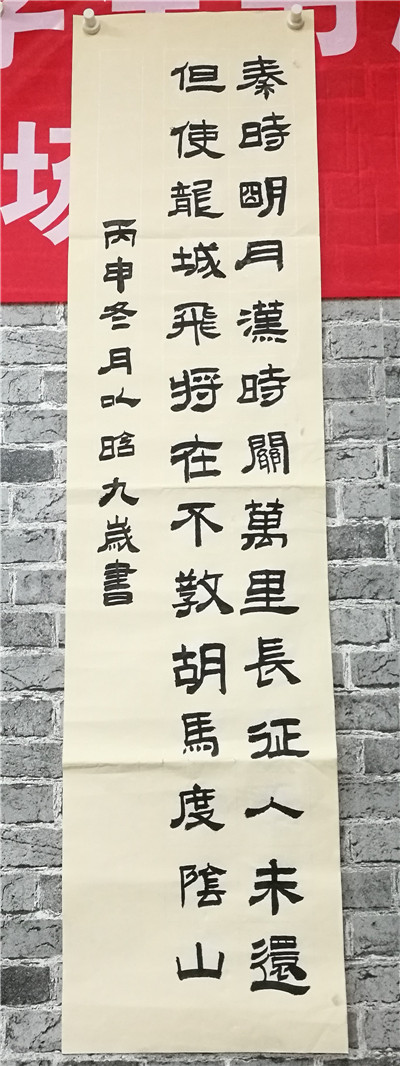 秦時明月漢時關萬里長征人未還
但使龍城飛將在不教胡馬度陰山
丙申冬月以晗九歲書
场